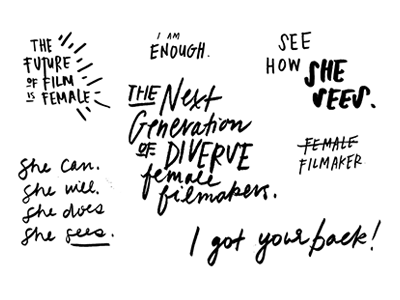 THE
FUTURE
OF FILM
IS FEMALE
I AM
ENOUGH.
SEE
HOW SHE
SEES.
THE Next
Generation
OF DIVERVE
female
filmmakers.
FEMALE
FILMMAKER
She can.
She will.
She does
She sees.
I got your back!